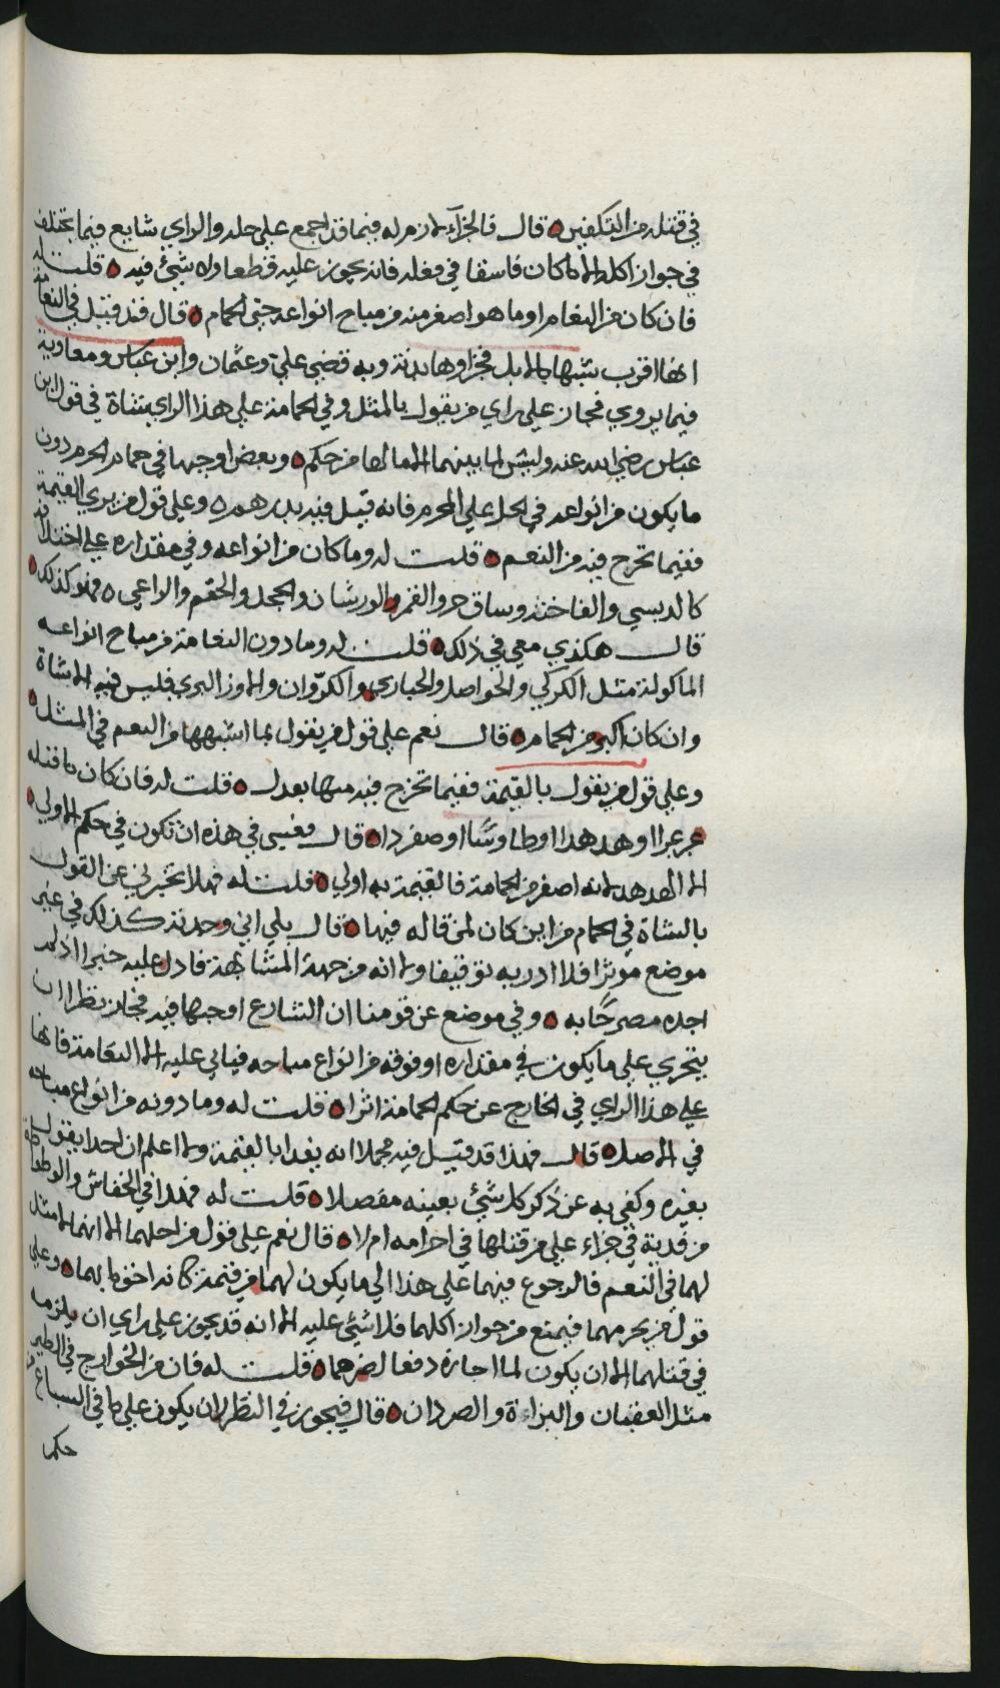 في قتله من التكفير قال فالجزآء لازم له فيما قد اجمع علي حله والراي شايع فيما يختلف
في جواز اكله الا ما كان فاسقا في فعله فانه يجوز عليه قطعا ولا شيئ فيه قلت له
فان كان من النعام او ما هو اصغر منه من مباح انواعه حتي الحمام قال فقد قيل في النعامة
انها اقرب شبها بالابل فجزاوها بدنة وبه قضي علي وعثمان وابن عباس ومعاوية
فيما يروي فجاز علي راي من يقول بالمثل وفي الحمامة علي هذا الراي شاة في قول ابن
عباس رضي الله عنه وليس لما بينهما الا ما لها من حكم وبعض اوجبها في حمام الحرم دون
ما يكون من انواعه في الحل علي المحرم فانه قيل فيه بدرهم وعلي قول من يري القيمة
ففيما تخرج فيه من النعم قلت له وما كان من انواعه وفي مقداره علي اختلافه
كالدبسي والفاخته وساق حر والقمر والورشان والحجل والحقم والراعي فهو كذلك
قال هكذي معي في ذلك قلت له وما دون النعامة من مباح انواعه
الماكولة مثل الكركي والحواصل والحباري والكروان والاوز البري فليس فيه الا شاة
وان كان اكبر من الحمام قال نعم علي قول من يقول بما اشبهها من النعم في المثل
وعلي قول من يقول بالقيمة ففيما تخرج فيه منها بعدل قلت له فان كان ما قتله
عرعرا او هدهدا او طاوسًا او صفردا قال فعسي في هذه ان تكون في حكم الاولي
الا الهدهد لانه اصغر من الحمامة فالقيمة به اولي قلت له فهلا تخبرني عن القول
بالشاة في الحمام من اين كان لمن قاله فيها قال بلي اني وجدته كذلك في غير
موضع موثرا فلا ادريه توقيفا ولا انه من جهة المشابهة فادل عليه خبرا اذ لم
اجده مصرحًا به وفي موضع عن قومنا ان الشارع اوجبها فيه فجاز نظرا ان
يتحري علي ما يكون في مقداره او فوقه من انواع مباحه فياتي عليه الا النعامة فانها
علي هذا الراي في الخارج عن حكم الحمامة اثرا قلت له وما دونه من انواع مباحه
في الاصل قال فهذا قد قيل فيه مجملا انه يفدا بالقيمة ولا اعلم ان احدا يقول
بغيره وكفي به عن ذكر كل شيئ بعينه مفصلا قلت له فهذا في الخفاش والوطواط
من فدية في جزاء علي من قتلها في احرامه ام لا قال نعم علي قول من احلهما الا انهما لا مثل
لهما في النعم فالرجوع فيهما علي هذا الي ما يكون لهما من قيمة كانه احق ما بهما وعلي
قول من يحرمهما فيمنع من جواز اكلهما فلا شيئ عليه الا انه قد يجوز علي راي ان يلزمه
في قتلهما الا ان يكون لما اجازه دفعا لضرهما قلت له فان من الخوارج في الطير
مثل العقبان والبزاة والصردان قال فيجوز في النظر لان يكون علي ما في السباع من
حكم